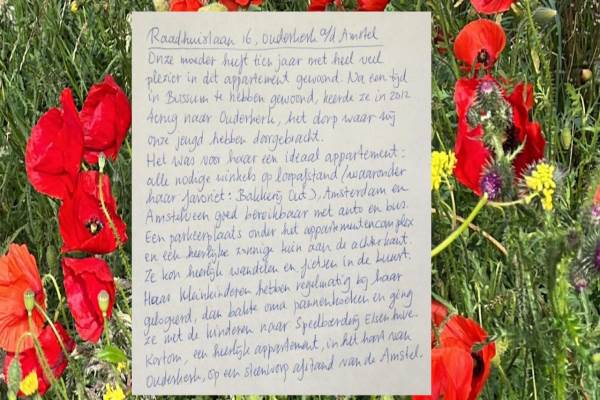 Raadhuislaan 16, Ouderkerk a/d Amstel
Onze moeder heeft tien jaar met heel veel
plezier in dit appartement gewoond. Na een tijd
in Bussum te hebben gewoond, keerde ze in 2012
terug naar Ouderkerk, het dorp waar wij
onze jeugd hebben doorgebracht.
Het was voor haar een ideaal appartement:
alle nodige winkels op loopafstand (waaronder
haar favoriet: Bakkerij Out), Amsterdam en
Amstelveen goed bereikbaar met auto en bus.
Een parkeerplaats onder het appartementencomplex
en een heerlijke zonnige tuin aan de achterkant.
Ze kon heerlijk wandelen en fietsen in de buurt.
Haar kleinkinderen hebben regelmatig bij haar
gelogeerd, dan bakte oma pannenkoeken en ging
ze met de kinderen naar Speelboerderij Elsenhove.
Kortom, een heerlijk appartement, in het hart van
Ouderkerk, op een steenworp afstand van de Amstel.